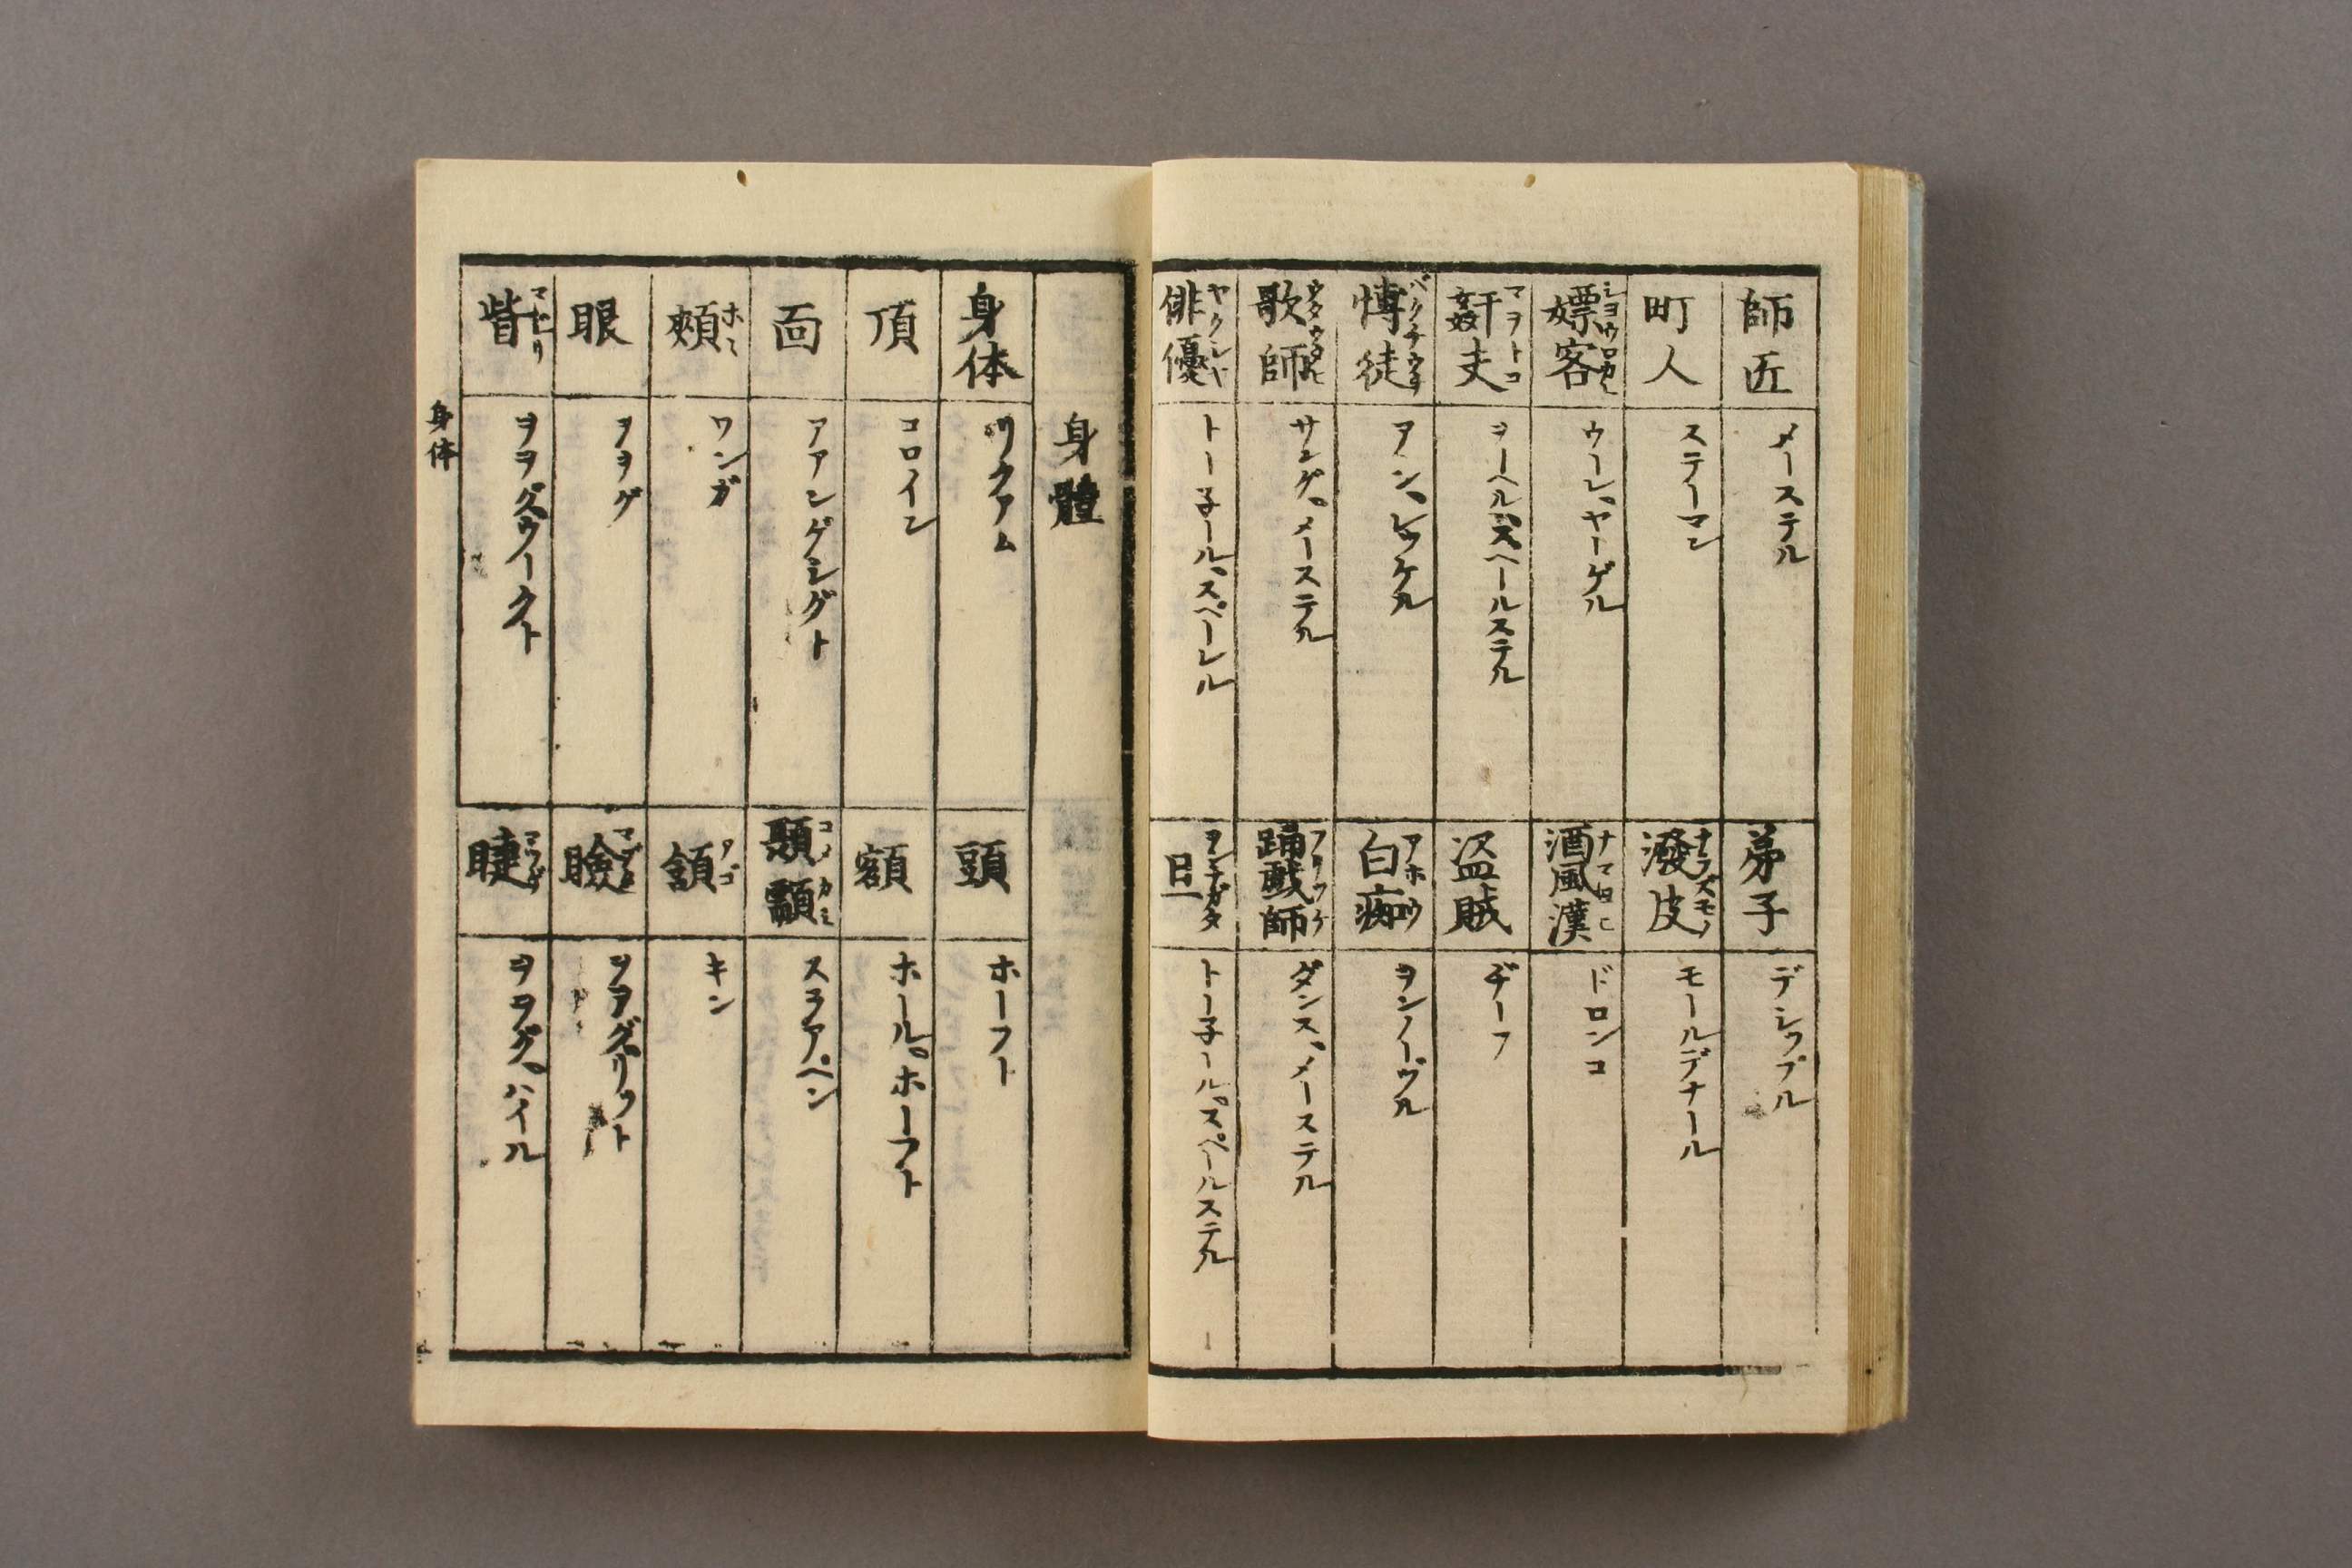 師匠
メーステル
弟子
デシップル
町人
ステーマン
潑皮
モールデナール
嫖客
ウーレ、ヤーゲル
酒風漢
ドロンコ
姧夫 マヲトコ
ヲーヘルスペールステル
盗賊
ヂーフ
愽徒
アン、レッケル
白痴 アホウ
ヲンノーヅル
歌師
サング、メーステル
踊戯師
ダンス、メーステル
俳優 ヤクシヤ
トー子ール、スペーレル
旦 ヲンナガタ
トー子ール、スペールステル
身體
身体
リクアム
頭
ホーフト
頂
コロイン
額
ホール、ホーフト
面
アアンゲシグト
顳 コメカミ
スラアペン
頰 ホヽ
ワンガ
頷 アゴ
キン
眼
ヲヲグ
瞼 マブタ
ヲヲグ、リット
眥 マジリ
ヲヲグ、ウイークト
睫 マツゲ
ヲヲグ、ハイル
身体